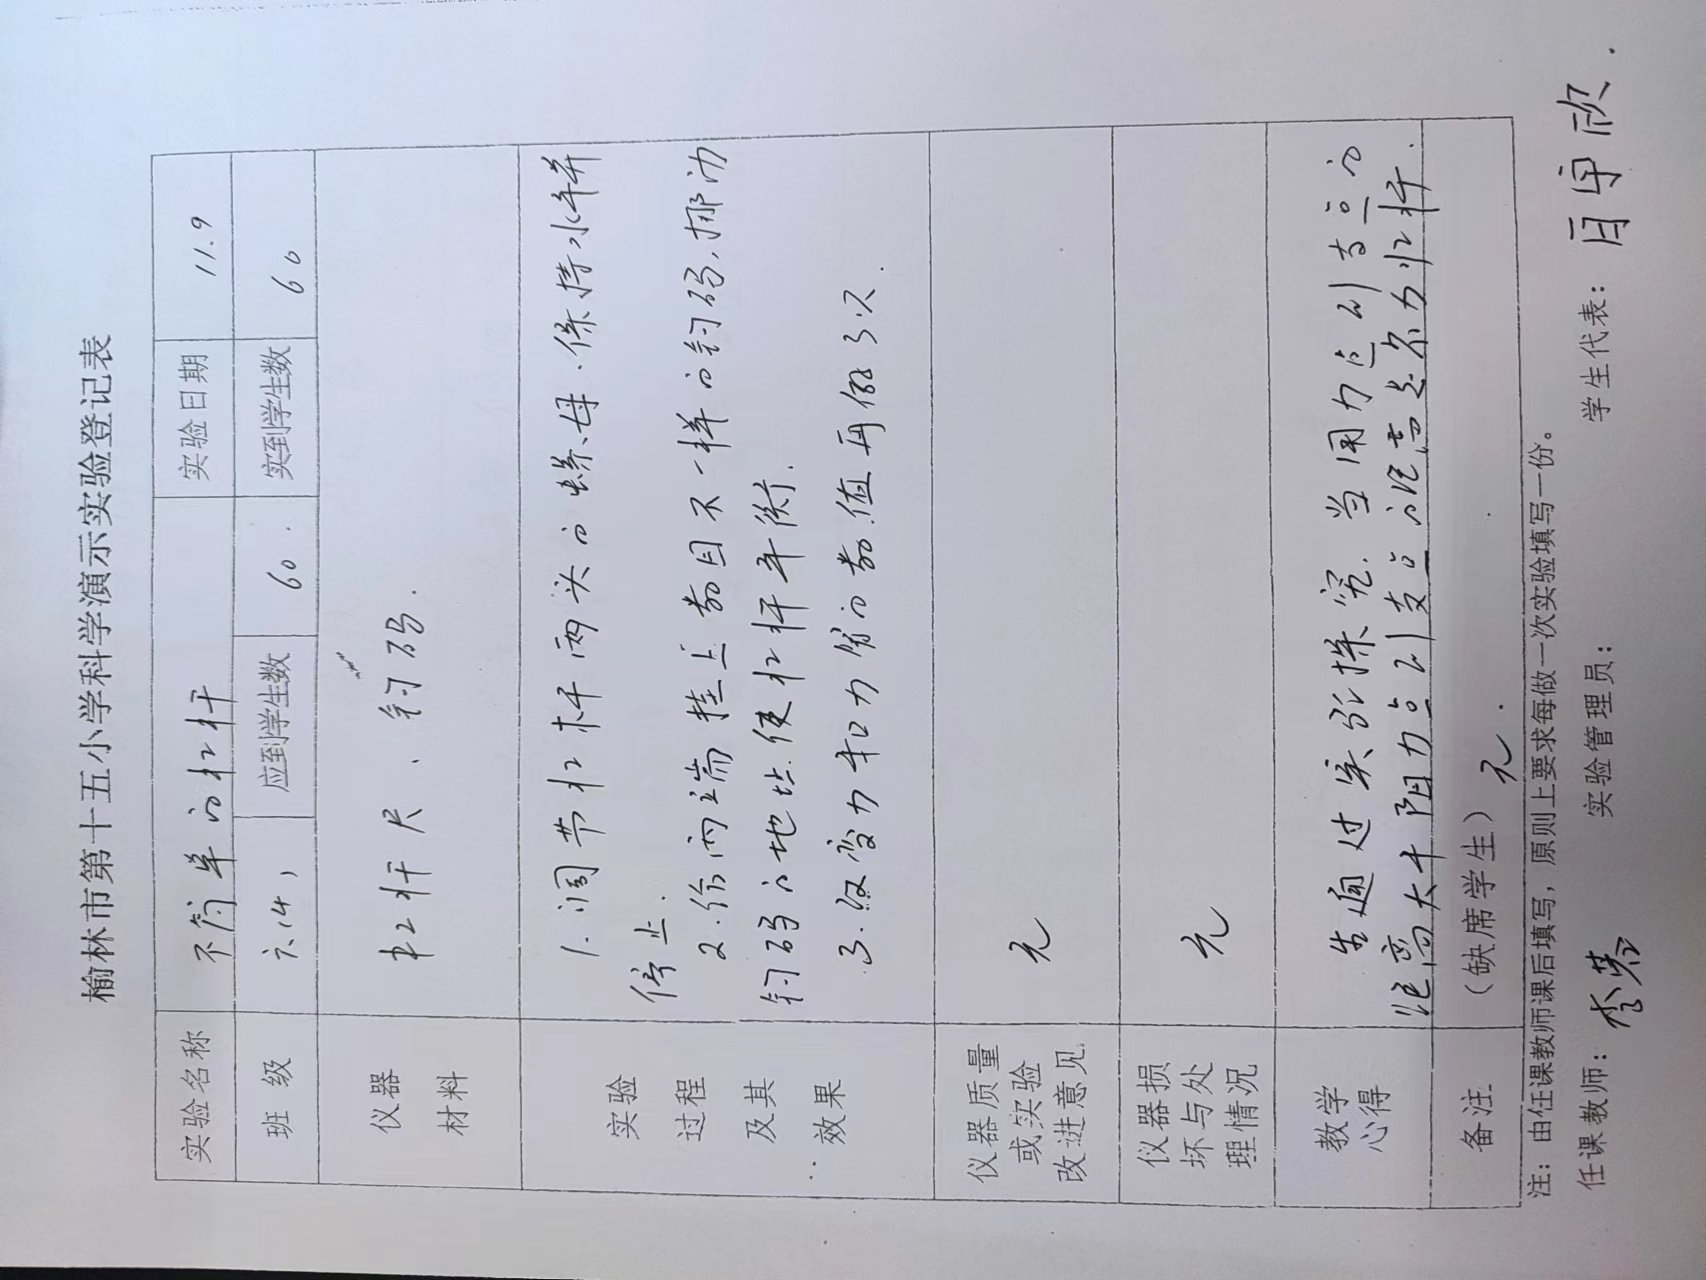 榆林市第十五小学科学演示实验登记表
实验名称 不简单的杠杆 实验日期 11.9
班 级 六(4) 应到学生数 60. 实到学生数 60
仪器
材料
杠杆尺、钩码.
实验
过程
及其
效果
1.调节杠杆两头的螺母.保持水平并
停止.
2.给两端挂上数目不一样的钩码,挪动
钩码的地址.使杠杆平衡.
3.改变力和力臂的数值再做3次.
仪器质量
或实验
改进意见
无
仪器损
坏与处
理情况
无
教学
心得
生通过实验探究.当用力点到支点的
距离大于阻力点到支点的距离是省力杠杆.
备注 (缺席学生) 无.
注:由任课教师课后填写,原则上要求每做一次实验填写一份。
任课教师: 实验管理员: 学生代表: